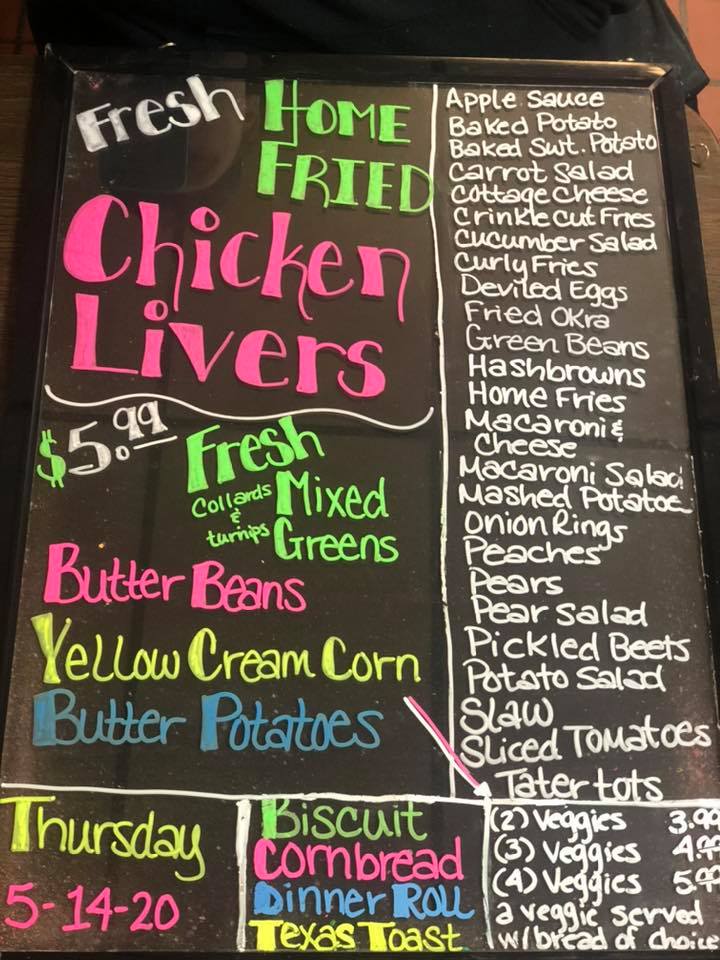 Fresh HOME
FRIED
Chicken
Livers
$5.99
Fresh
Collards Mixed
&
turnips Greens
Butter Beans
Yellow Cream Corn
Butter Potatoes
Apple Sauce
Baked Potato
Baked Swt. Potato
Carrot Salad
Cottage Cheese
Crinkle Cut Fries
Cucumber Salad
Curly Fries
Deviled Eggs
Fried Okra
Green Beans
Hashbrowns
Home Fries
Macaroni &
Cheese
Macaroni Salad
Mashed Potatoe
Onion Rings
Peaches
Pears
Pear Salad
Pickled Beets
Potato Salad
Slaw
Sliced Tomatoes
Tater tots
Thursday
5-14-20
Biscuit
Cornbread
Dinner Roll
Texas Toast
(2) Veggies 3.99
(3) Veggies 4.99
(4) Veggies 5.99
a veggie served
w/bread of choice